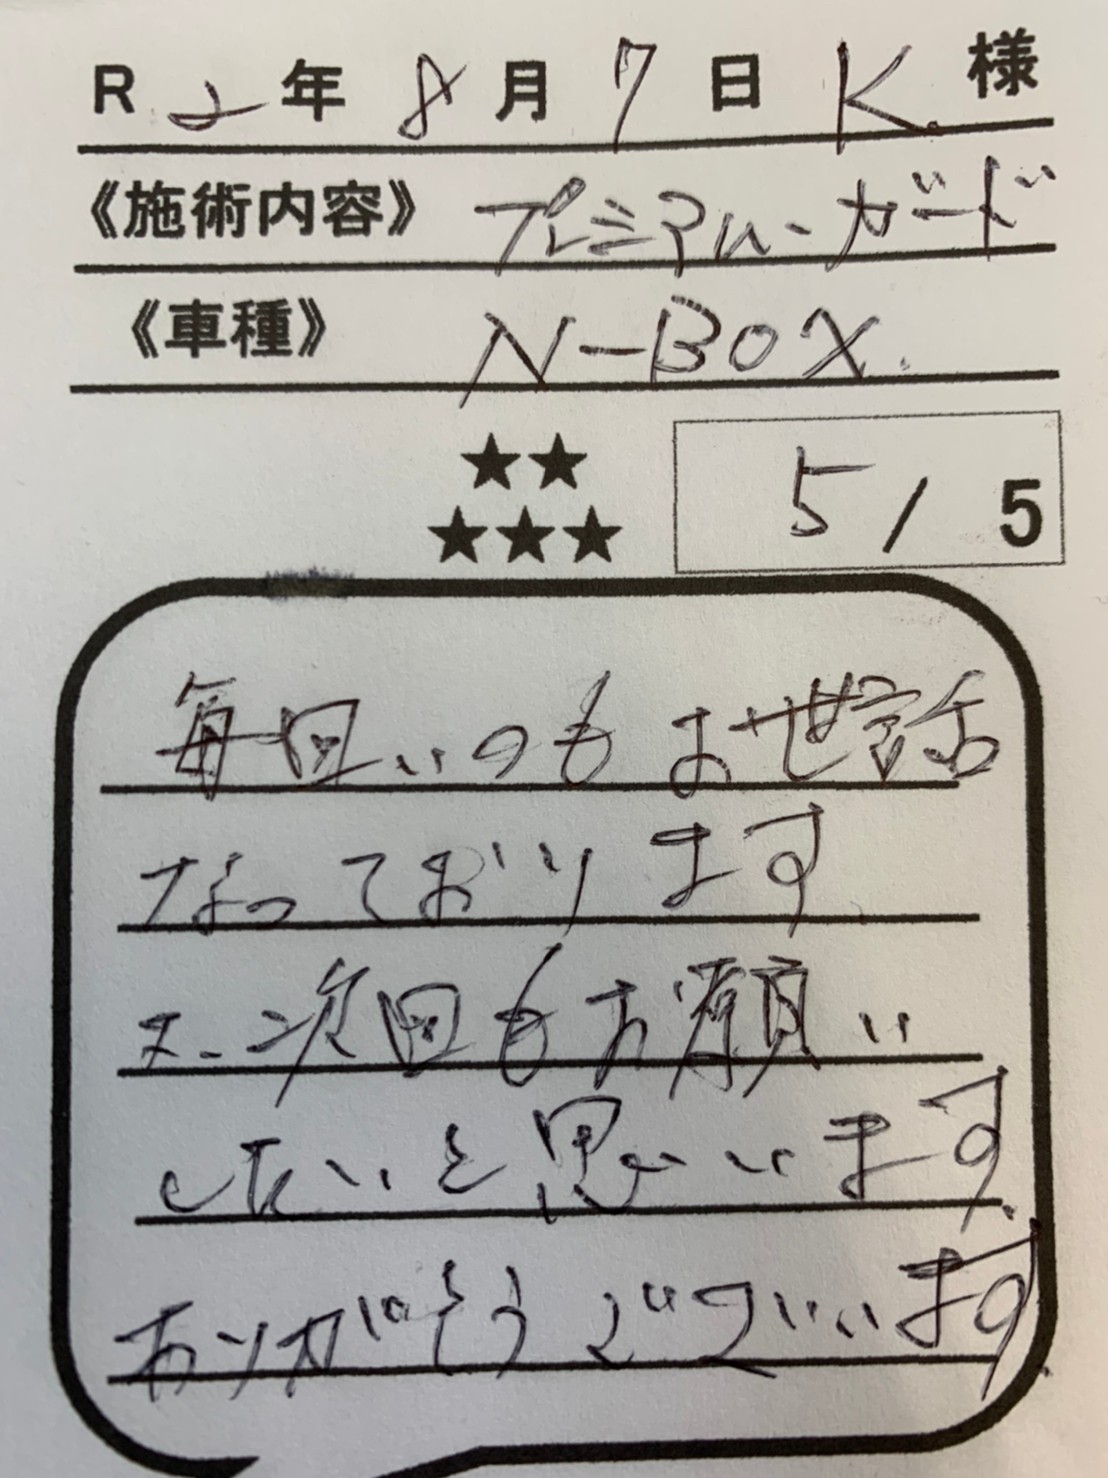 R 2年 8月 7日 K. 様
《施術内容》 プレミアム・ガード
《車種》 N-BOX.
★★
★★★
5 / 5
毎回いつもお世話
なっております
又、次回もお願い
したいと思います。
ありがとうございます。